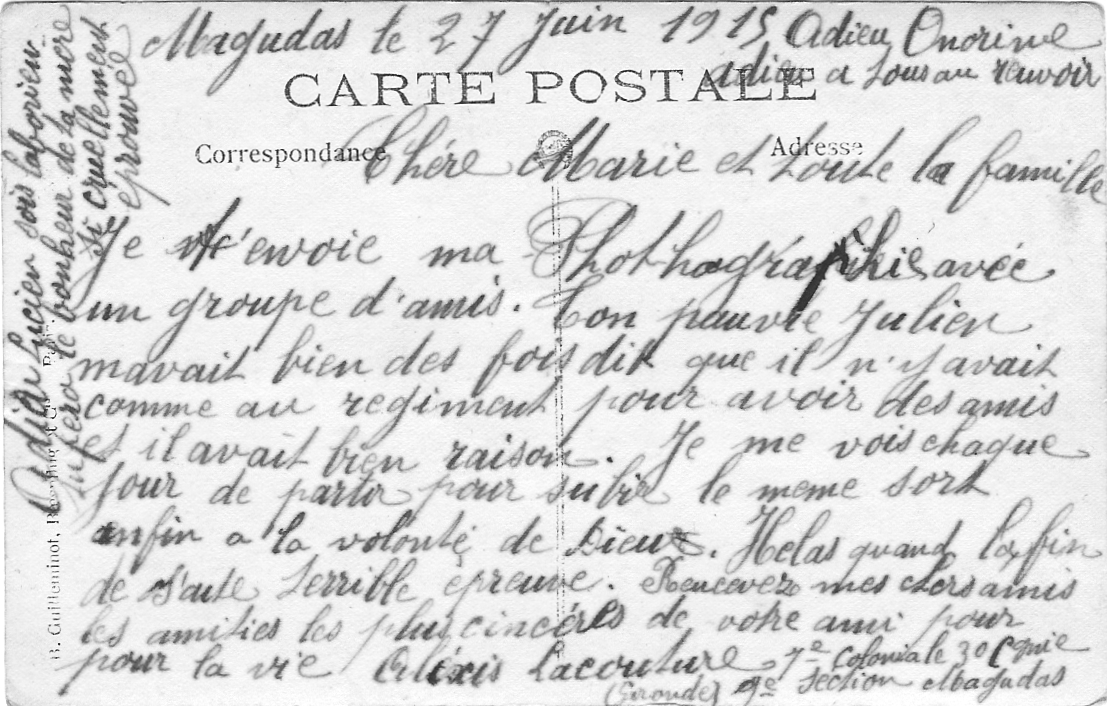 Magudas le 27 Juin 1915
Adieu Onorine
adieu a tous au revoir
CARTE POSTALE
Correspondance
Adresse
Chére Marie et toute la famille
Je t'envoie ma Phothographie avéc
un groupe d'amis. Ton pauvre Julien
mavait bien des fois dit que il n'y avait
comme au regiment pour avoir des amis
et il avait bien raison. Je me vois chaque
jour de partir pour subir le meme sort
enfin a la volonté de Dieu. Helas quand la fin
de s'aute terrible épreuve. Reucevez mes chers amis
les amities les plus cincéres de votre ami pour
pour la vie Aléxis Lacouture 7e Coloniale 30 Cgnie
(Gironde) 9e Section Magudas
Adieu Lucien sois laborieu
tu fera le bonheur de ta mere
si cruellement
éprouvée
R. Guilleminot,